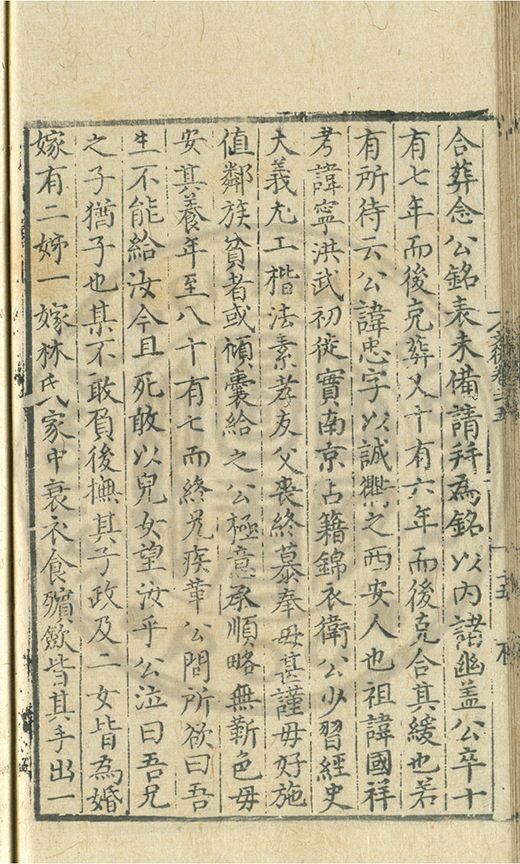 合葬念公銘表未備請拜為銘以內諸幽盖公卒十
有七年而後克葬又十有六年而後克合其緩也若
有所待云公諱忠字以誠衢之西安人也祖諱國祥
考諱寧洪武初徙實南京占籍錦衣衛公少習經史
大義尤工楷法素孝友父喪終慕奉母甚謹母好施
值鄰族貧者或傾囊給之公極意承順略無靳色母
安其養年至八十有七而終兄疾革公問所欲曰吾
生不能給汝今且死敢以兒女望汝乎公泣曰吾兄
之子猶子也某不敢負後撫其子政及二女皆為婚
嫁有二姊一嫁林氏家中衰衣食殯歛皆其手出一
文後卷二五
十五